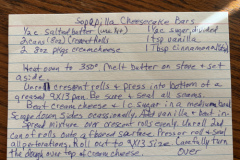 Sopapilla Cheesecake Bars
1/2 c salted butter 1 1/2 c sugar, divided
2 cans (8oz) crescent rolls 1 tsp vanilla
2 8oz pkgs cream cheese 1 tbsp cinnamon
Heat oven to 350° Melt butter on stove + set
aside.
Unroll crescent rolls + press into bottom of a
greased 9x13 pan. Be sure + seal all seams.
Beat cream cheese + 1 c sugar in a medium bowl
Scrape down sides occasionally. Add vanilla + beat in.
Spread mixture over crescent rolls evenly. Unroll 2nd
can of rolls onto a floured surface. Press or roll + seal
all perforations. Roll out to 9x13 size. Carefully turn
the dough over top of cream cheese. Over